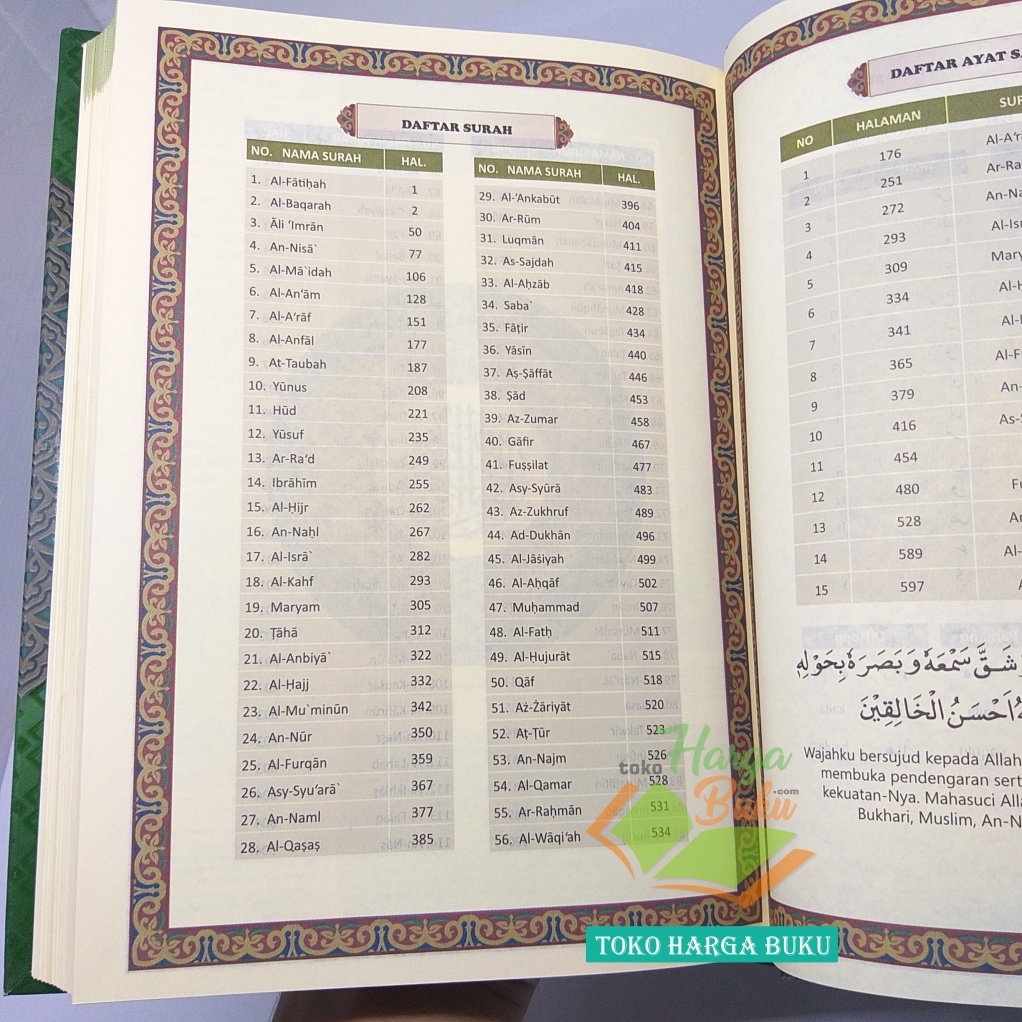 DAFTAR SURAH
NO. NAMA SURAH HAL.
1. Al-Fātiḥah 1
2. Al-Baqarah 2
3. Āli ‘Imrān 50
4. An-Nisā` 77
5. Al-Mā`idah 106
6. Al-An‘ām 128
7. Al-A‘rāf 151
8. Al-Anfāl 177
9. At-Taubah 187
10. Yūnus 208
11. Hūd 221
12. Yūsuf 235
13. Ar-Ra‘d 249
14. Ibrāhīm 255
15. Al-Ḥijr 262
16. An-Naḥl 267
17. Al-Isrā` 282
18. Al-Kahf 293
19. Maryam 305
20. Ṭāhā 312
21. Al-Anbiyā` 322
22. Al-Ḥajj 332
23. Al-Mu`minūn 342
24. An-Nūr 350
25. Al-Furqān 359
26. Asy-Syu‘arā` 367
27. An-Naml 377
28. Al-Qaṣaṣ 385
NO. NAMA SURAH HAL.
29. Al-‘Ankabūt 396
30. Ar-Rūm 404
31. Luqmān 411
32. As-Sajdah 415
33. Al-Aḥzāb 418
34. Saba` 428
35. Fāṭir 434
36. Yāsīn 440
37. Aṣ-Ṣāffāt 446
38. Ṣād 453
39. Az-Zumar 458
40. Gāfir 467
41. Fuṣṣilat 477
42. Asy-Syūrā 483
43. Az-Zukhruf 489
44. Ad-Dukhān 496
45. Al-Jāṡiyah 499
46. Al-Aḥqāf 502
47. Muḥammad 507
48. Al-Fatḥ 511
49. Al-Ḥujurāt 515
50. Qāf 518
51. Aż-Żāriyāt 520
52. Aṭ-Ṭūr 523
53. An-Najm 526
54. Al-Qamar 528
55. Ar-Raḥmān 531
56. Al-Wāqi‘ah 534
DAFTAR AYAT
NO HALAMAN
1 176 Al-A‘r
2 251 Ar-Ra
3 272 An-Na
4 293 Al-Is
5 309 Mary
6 334 Al-Ḥ
7 341
8 365 Al-F
9 379 An-
10 416 As-
11 454
12 480 Fu
13 528 An
14 589 Al-
15 597 A
شَقَّ سَمْعَهُ وَبَصَرَهُ بِحَوْلِهِ
اَحْسَنُ الْخَالِقِيْنَ
Wajahku bersujud kepada Allah
membuka pendengaran sert
kekuatan-Nya. Mahasuci Alla
Bukhari, Muslim, An-N
toko Harga
Buku .com
TOKO HARGA BUKU